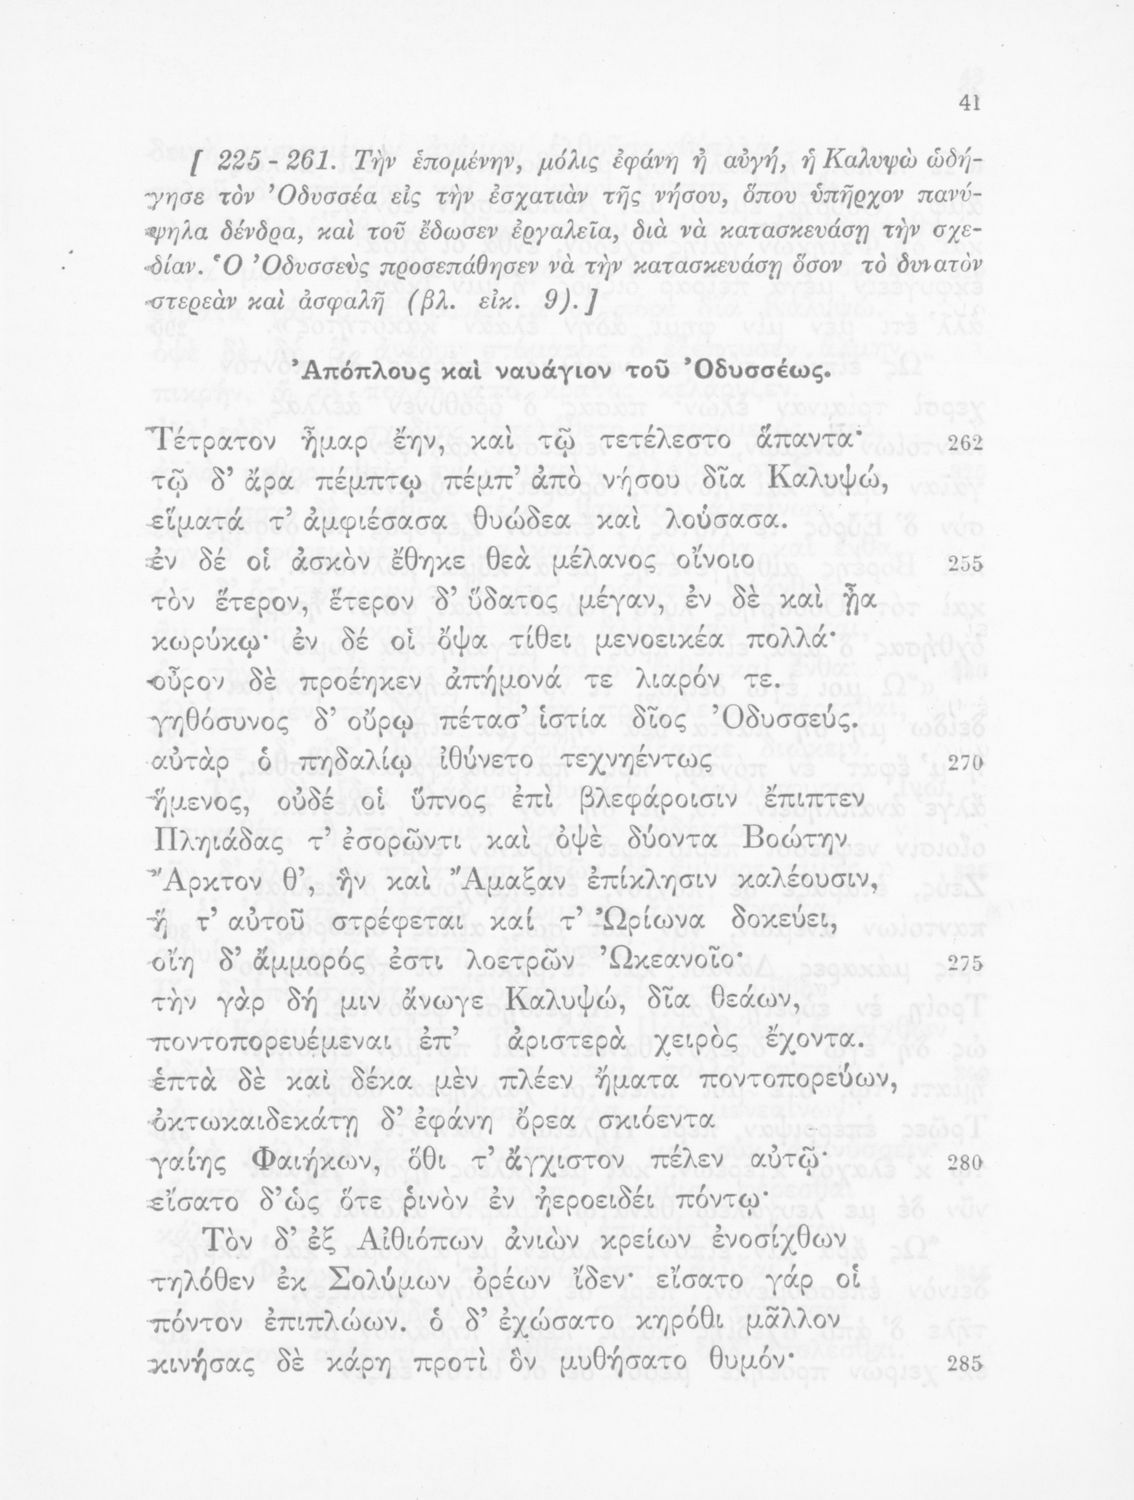 41
[ 225 - 261. Τὴν ἑπομένην, μόλις ἐφάνη ἡ αὐγή, ἡ Καλυψὼ ὡδή-
γησε τὸν Ὀδυσσέα εἰς τὴν ἐσχατιὰν τῆς νήσου, ὅπου ὑπῆρχον πανύ-
ψηλα δένδρα, καὶ τοῦ ἔδωσεν ἐργαλεῖα, διὰ νὰ κατασκευάσῃ τὴν σχε-
δίαν. Ὁ Ὀδυσσεὺς προσεπάθησεν νὰ τὴν κατασκευάσῃ ὅσον τὸ δυνατὸν
στερεὰν καὶ ἀσφαλῆ (βλ. εἰκ. 9). ]
Ἀπόπλους καὶ ναυάγιον τοῦ Ὀδυσσέως.
Τέτρατον ἦμαρ ἔην, καὶ τῷ τετέλεστο ἅπαντα· 262
τῷ δ’ ἄρα πέμπτῳ πέμπ’ ἀπὸ νήσου δῖα Καλυψώ,
εἵματά τ’ ἀμφιέσασα θυώδεα καὶ λούσασα.
ἐν δέ οἱ ἀσκὸν ἔθηκε θεὰ μέλανος οἴνοιο 255
τὸν ἕτερον, ἕτερον δ’ ὕδατος μέγαν, ἐν δὲ καὶ ᾖα
κωρύκῳ· ἐν δέ οἱ ὄψα τίθει μενοεικέα πολλά·
οὖρον δὲ προέηκεν ἀπήμονά τε λιαρόν τε.
γηθόσυνος δ’ οὔρῳ πέτασ’ ἱστία δῖος Ὀδυσσεύς.
αὐτὰρ ὁ πηδαλίῳ ἰθύνετο τεχνηέντως 270
ἥμενος, οὐδέ οἱ ὕπνος ἐπὶ βλεφάροισιν ἔπιπτεν
Πληιάδας τ’ ἐσορῶντι καὶ ὀψὲ δύοντα Βοώτην
Ἄρκτον θ’, ἣν καὶ Ἄμαξαν ἐπίκλησιν καλέουσιν,
ἥ τ’ αὐτοῦ στρέφεται καί τ’ Ὠρίωνα δοκεύει,
οἴη δ’ ἄμμορός ἐστι λοετρῶν Ὠκεανοῖο· 275
τὴν γὰρ δή μιν ἄνωγε Καλυψώ, δῖα θεάων,
ποντοπορευέμεναι ἐπ’ ἀριστερὰ χειρὸς ἔχοντα.
ἑπτὰ δὲ καὶ δέκα μὲν πλέεν ἤματα ποντοπορεύων,
ὀκτωκαιδεκάτῃ δ’ ἐφάνη ὄρεα σκιόεντα
γαίης Φαιήκων, ὅθι τ’ ἄγχιστον πέλεν αὐτῷ· 280
εἴσατο δ’ὡς ὅτε ῥινὸν ἐν ἠεροειδέι πόντῳ·
Τὸν δ’ ἐξ Αἰθιόπων ἀνιὼν κρείων ἐνοσίχθων
τηλόθεν ἐκ Σολύμων ὀρέων ἴδεν· εἴσατο γάρ οἱ
πόντον ἐπιπλώων. ὁ δ’ ἐχώσατο κηρόθι μᾶλλον
κινήσας δὲ κάρη προτὶ ὃν μυθήσατο θυμόν· 285